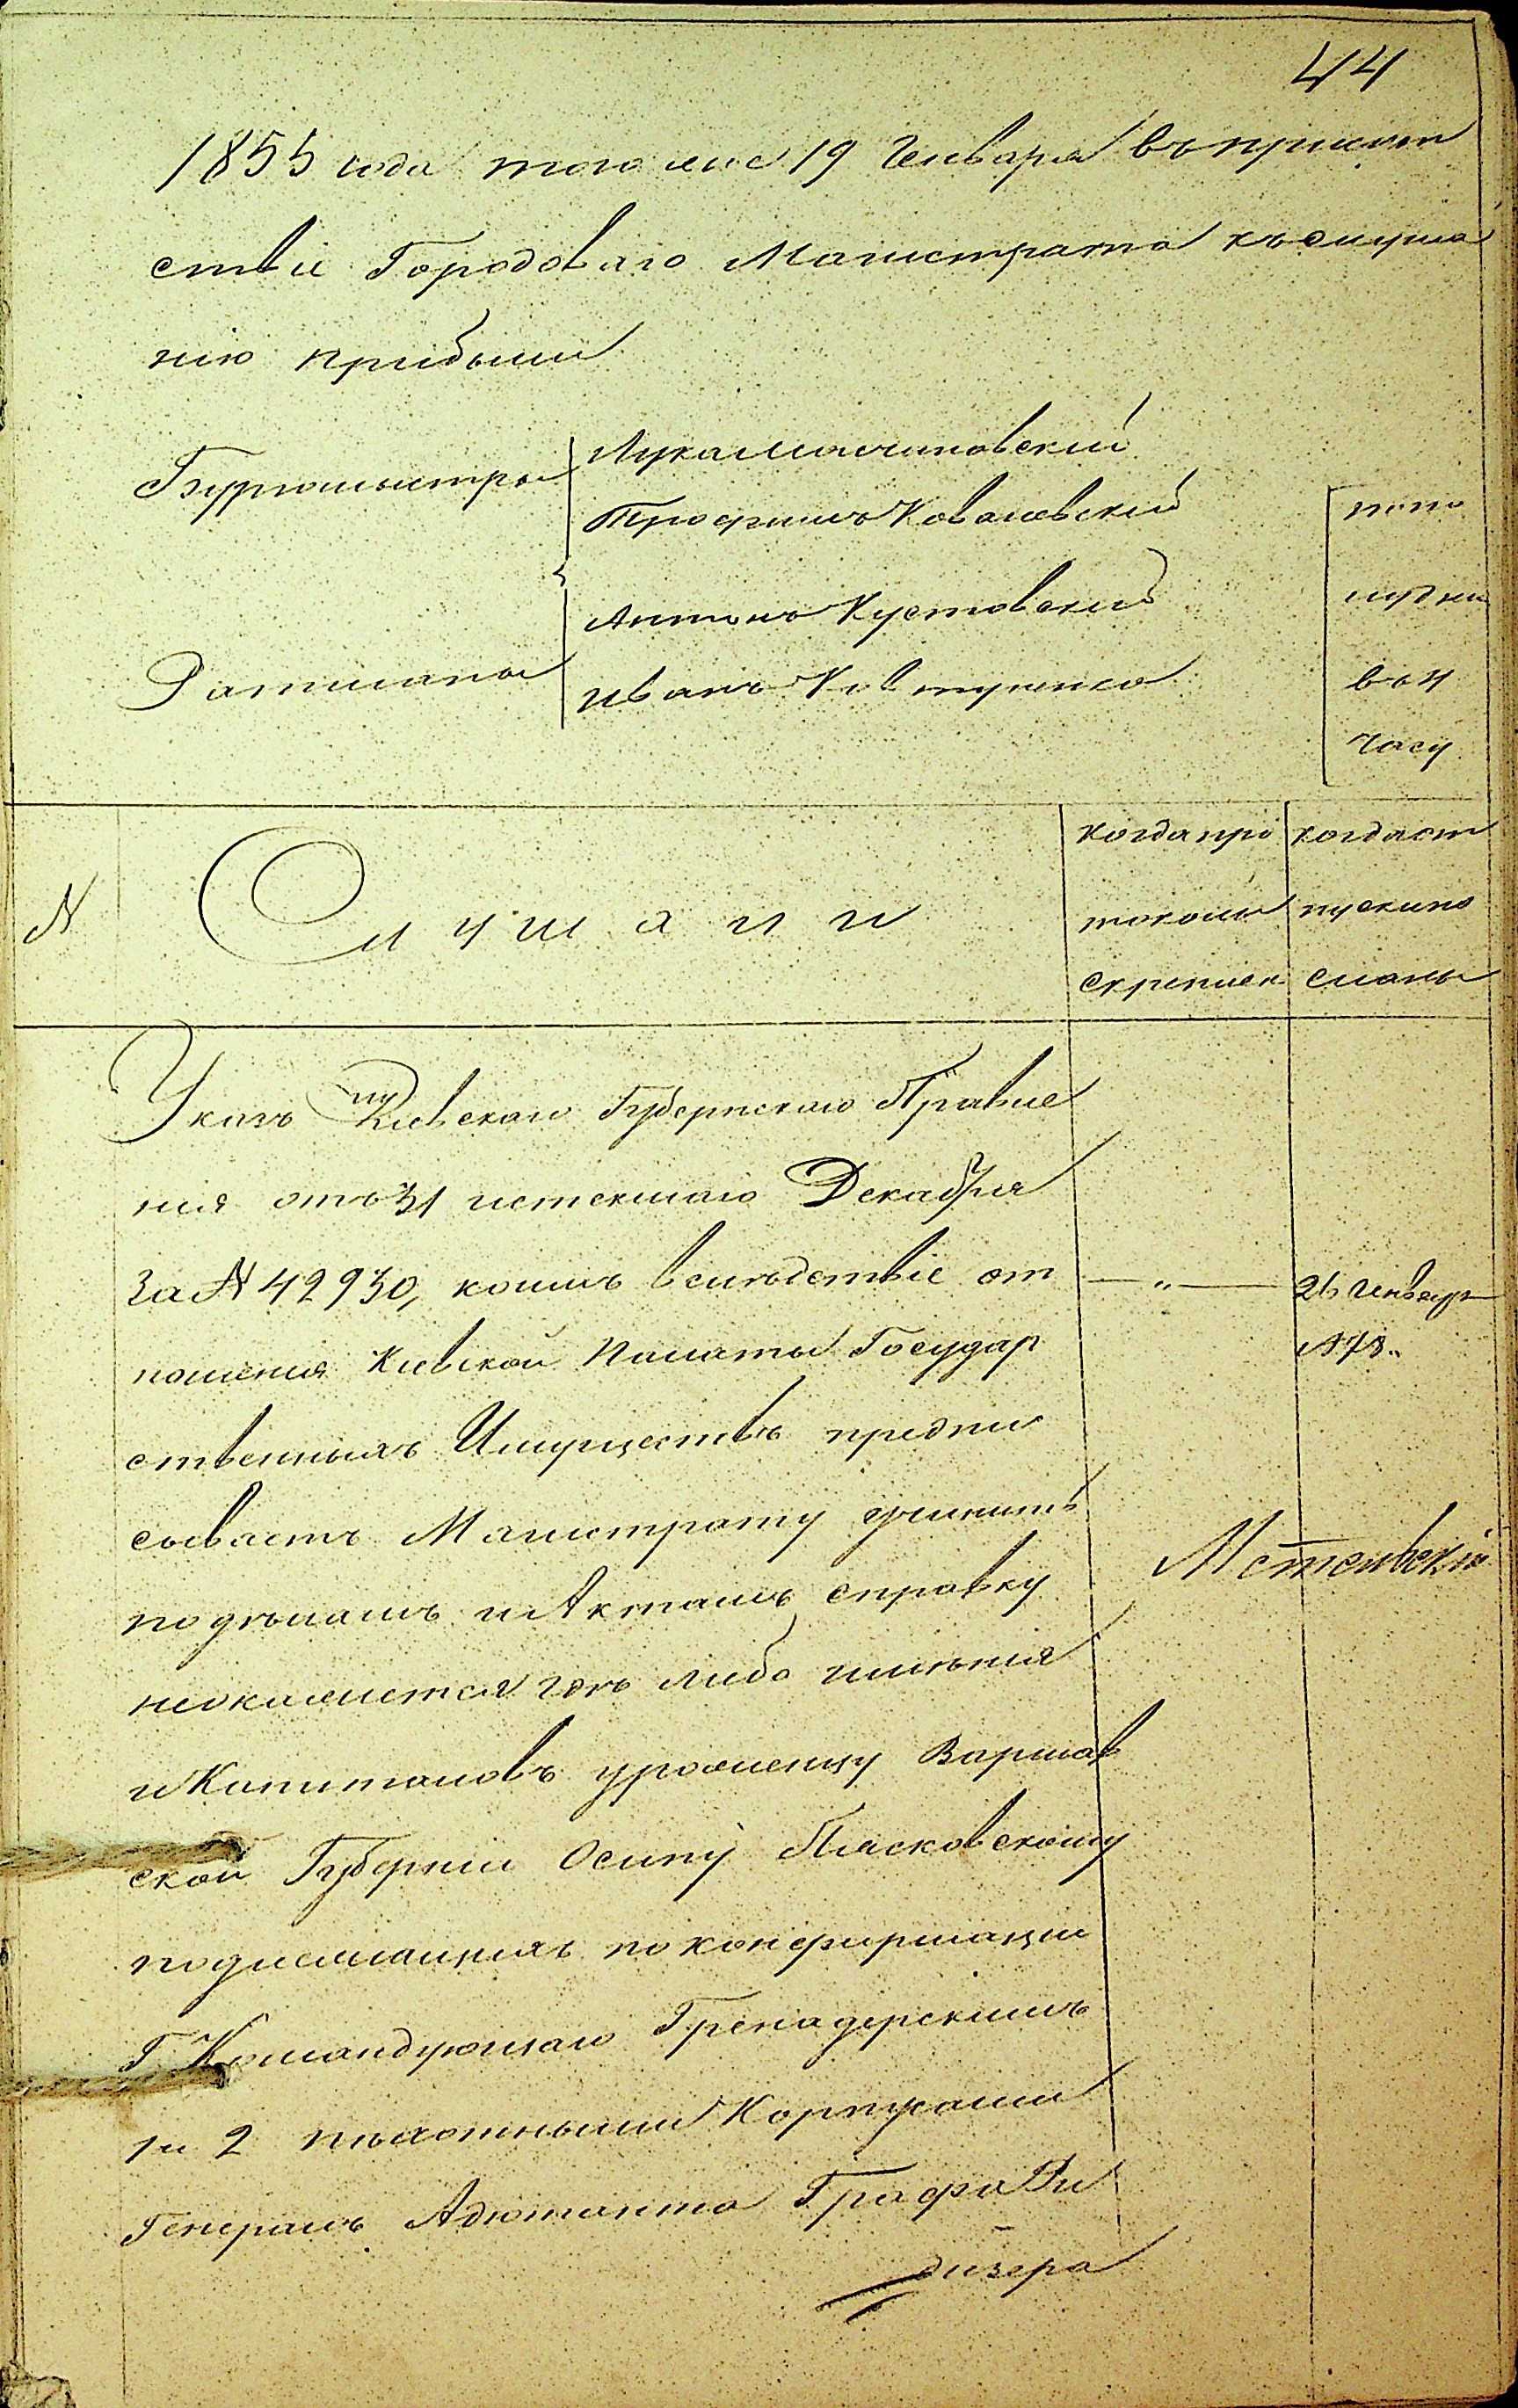 44
1855 года того же 19 Генваря въ присут
ствіе Городоваго Магистрата къ слуша
нію прибыли
Бургомистры
Лука
Трофимъ Ковалевскій
Ратманы
Антонъ Кустовскій
Иванъ Ковтуненко
попо
лудни
въ
часу
N
Слушали
когда про
токолы
скреплен
когда от
пускипо
сланы
Указъ Кіевскаго Губернскаго Правле
нія отъ 31 истекшаго Декабря
За N 42930, коимъ вслѣдствіе от
ношенія Кіевской Палаты Государ
ственныхъ Имуществъ предпи
сываетъ Магистрату учинить
подѣламъ и Актамъ справку
неокажется гдѣ либо имѣнія
и Капиталовъ уроженцу Варшав
ской Губерніи Осипу Пясковскому
подлежащихъ по конфирмаціи
Г Командующаго Гренадерскимъ
1 и 2 пѣхотными Корпусами
Генералъ Адютанта Графа Ри
дигера
— „ —
26 Генваря
N 78.